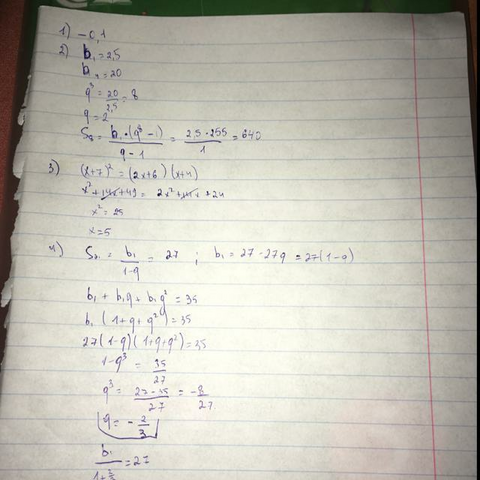 1) -0,1
2) b₁ = 2,5
b₄ = 20
q³ = 20/2,5 = 8
q = 2
S₈ = b₁ · (q⁸ - 1)/(q - 1) = 2,5 · 255/1 = 640
3) (x+7)² = (2x+6)(x+4)
x² + 14x + 49 = 2x² + 14x + 24
x² = 25
x = 5
4) S = b₁/(1-q) = 27 ; b₁ = 27 - 27q = 27(1-q)
b₁ + b₁q + b₁q² = 35
b₁ (1 + q + q²) = 35
27(1-q)(1+q+q²) = 35
1 - q³ = 35/27
q³ = 27-35/27 = -8/27
q = -2/3
b₁/(1+2/3) = 27